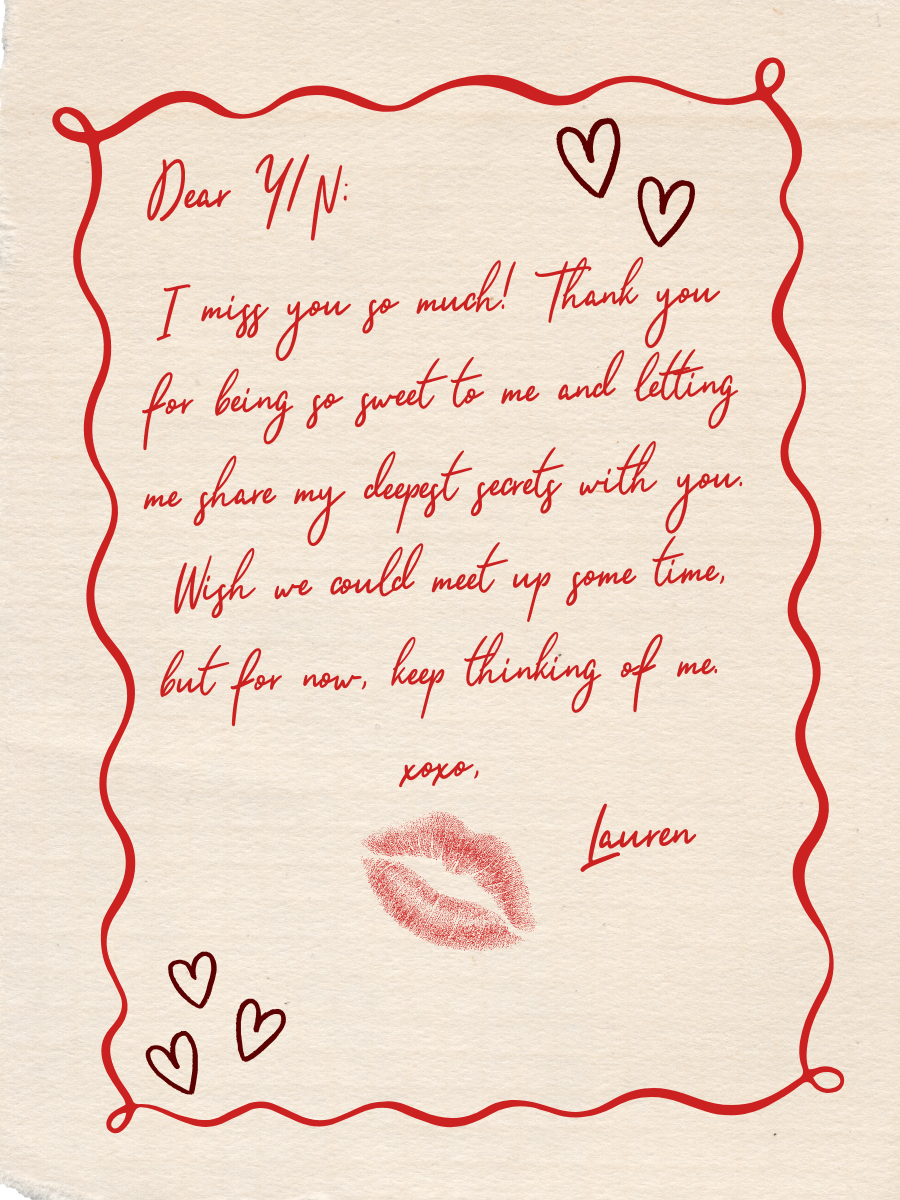 Dear Y/N:
I miss you so much! Thank you
for being so sweet to me and letting
me share my deepest secrets with you.
Wish we could meet up some time,
but for now, keep thinking of me.
xoxo,
Lauren